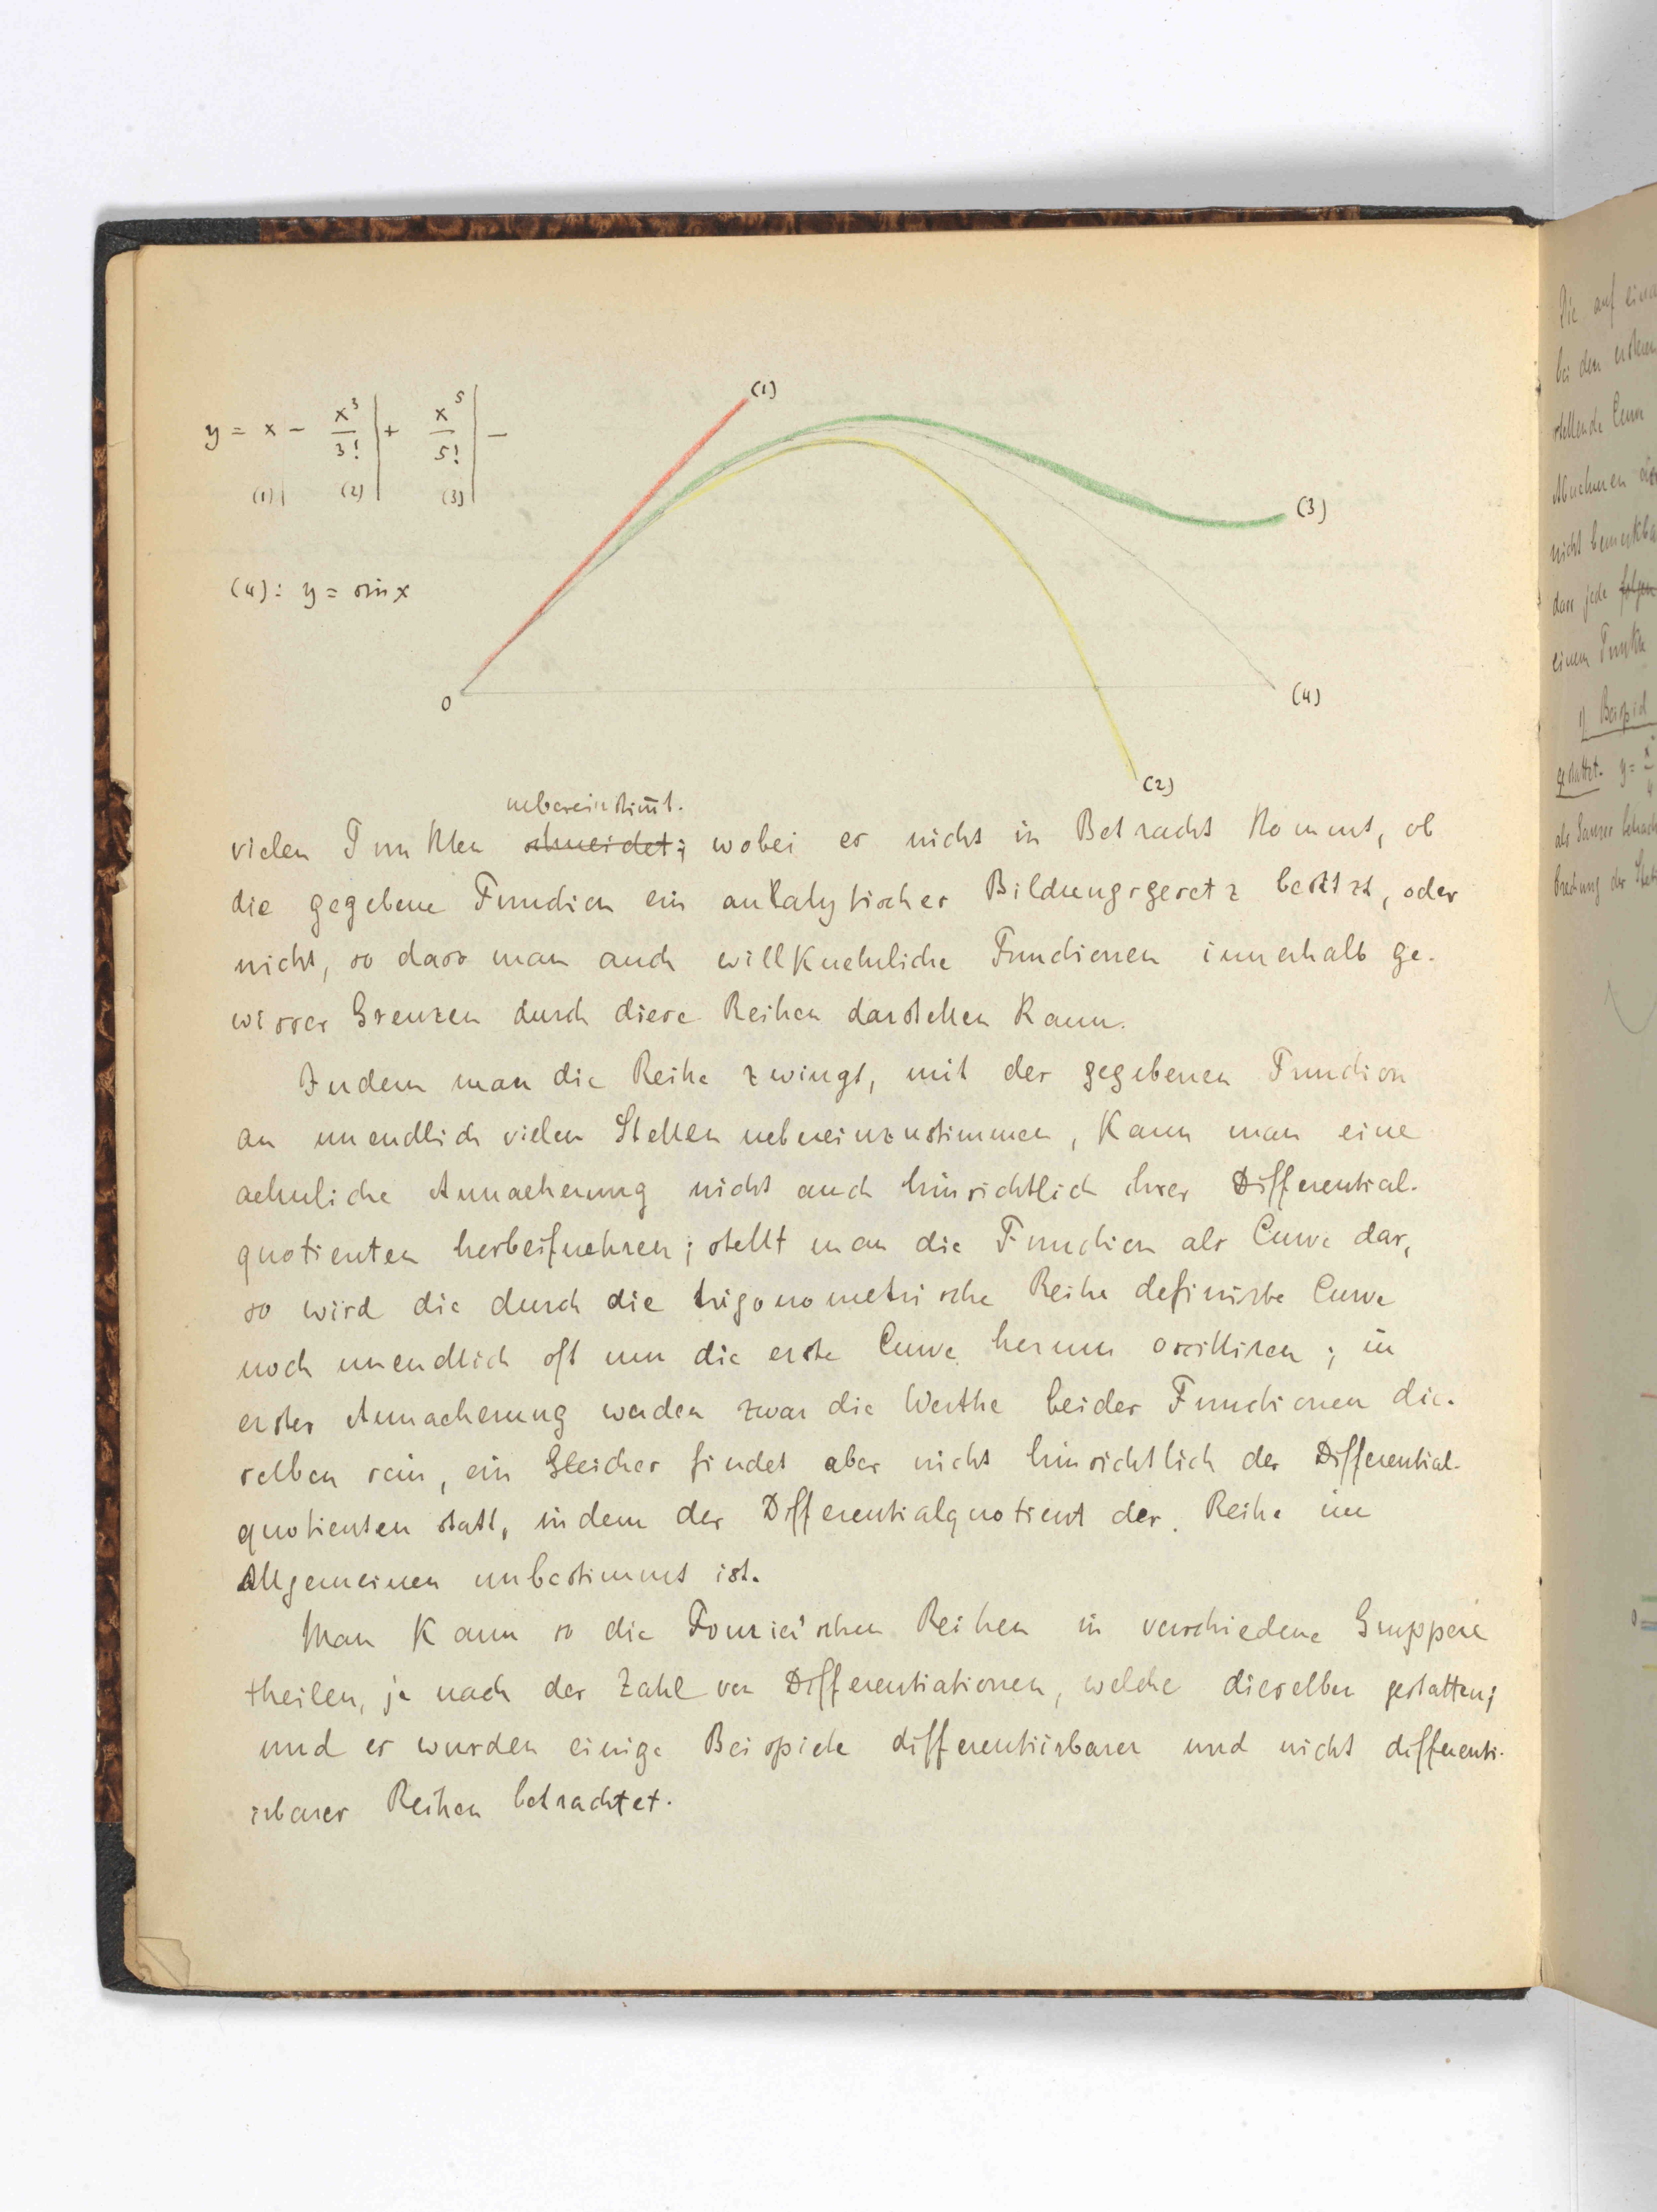 y = x - x³/3! | + x⁵/5! | -
(1) | (2) | (3) |
(4): y = sin x
(1)
(3)
0
(4)
(2)
uebereinstim̄t.
vielen Punkten schneidet; wobei es nicht in Betracht kommt, ob
die gegebene Function ein analytisches Bildungsgesetz besitzt, oder
nicht, so dass man auch willkuehrliche Functionen innerhalb ge-
wisser Grenzen durch diese Reihen darstellen kann.
Indem man die Reihe zwingt, mit der gegebenen Function
an unendlich vielen Stellen uebereinzustimmen, kann man eine
aehnliche Annaeherung nicht auch hinsichtlich ihrer Differential-
quotienten herbeifuehren; stellt man die Function als Curve dar,
so wird die durch die trigonometrische Reihe definirte Curve
noch unendlich oft um die erste Curve herum oscilliren; in
erster Annaeherung werden zwar die Werthe beider Functionen die-
selben sein, ein Gleiches findet aber nicht hinsichtlich der Differential-
quotienten statt, indem der Differentialquotient der Reihe im
Allgemeinen unbestimmt ist.
Man kann so die Fourier'schen Reihen in verschiedene Gruppen
theilen, je nach der Zahl von Differentiationen, welche dieselben gestatten;
und es wurden einige Beispiele differentiirbarer und nicht differenti-
irbarer Reihen betrachtet.
Die auf
bei den
stellende Curve
Abnehmen
nicht
dass jede folgen
einem Punkte
1) Beispiel
gestattet. y =
als Ganzes
Brechung der
0